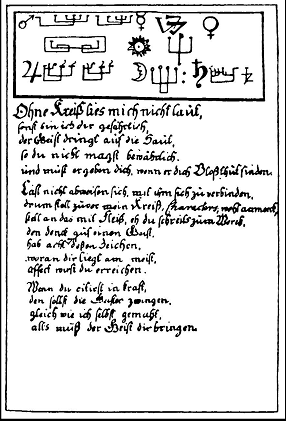 Ohne Kreiß lies mich nicht laut,
sonst bin ich dir gefährlich,
der Geist dringt auf die Haut,
so du nicht magst bewährlich.
und muß er geben dich, wenn er dich
Laß nicht abweisen sich, mit ihm sich zu verbinden,
drum stell zuvor mein Kreiß, Characters, wohl
an das mit Fleiß, eh du schreibs zum Werck,
den denck auf einen Geist,
hab acht Zeichen,
woran dir liegt am meist,
wirst du erreichen.
Wann du citiest in kraft,
den sollst die Geister zwingen,
gleich wie ich selbst gemacht,
alls muß der Geist dir bringen.